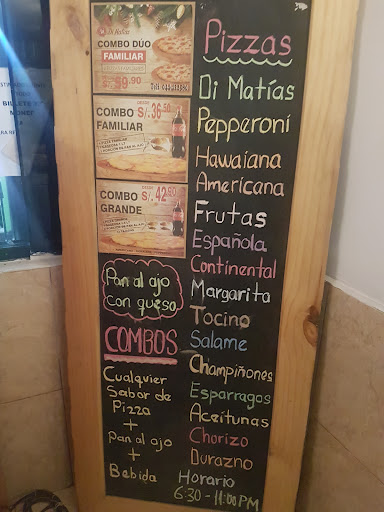 COMBO DÚO
FAMILIAR
COMBO S/.36.50
FAMILIAR
COMBO S/.42.50
GRANDE
Pan al ajo
con queso
COMBOS
Cualquier
Sabor de
Pizza
+
Pan al ajo
+
Bebida
Pizzas
Di Matías
Pepperoni
Hawaiana
Americana
Frutas
Española
Continental
Margarita
Tocino
Salame
Champiñones
Esparragos
Aceitunas
Chorizo
Durazno
Horario
6:30 - 11:00 PM